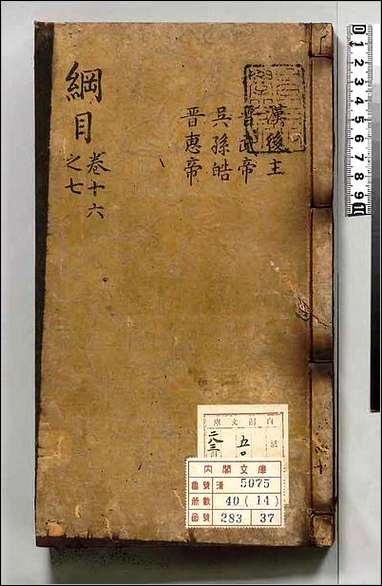 綱目 卷十六
之七
漢後主
晋武帝
吳孫皓
晋惠帝
內閣文庫
五〇
二八三
內閣文庫
番號 漢 5075
冊數 40 (14)
函號 283 37
1 2 3 4 5 6 7 8 9